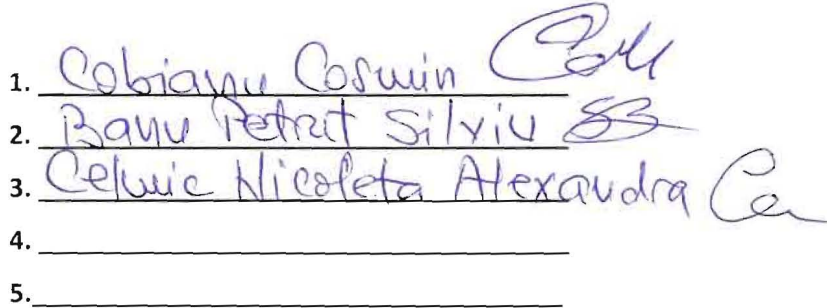 1. Cobianu Cosmin
2. Banu Petrut Silviu
3. Celmic Nicoleta Alexandra
4.
5.